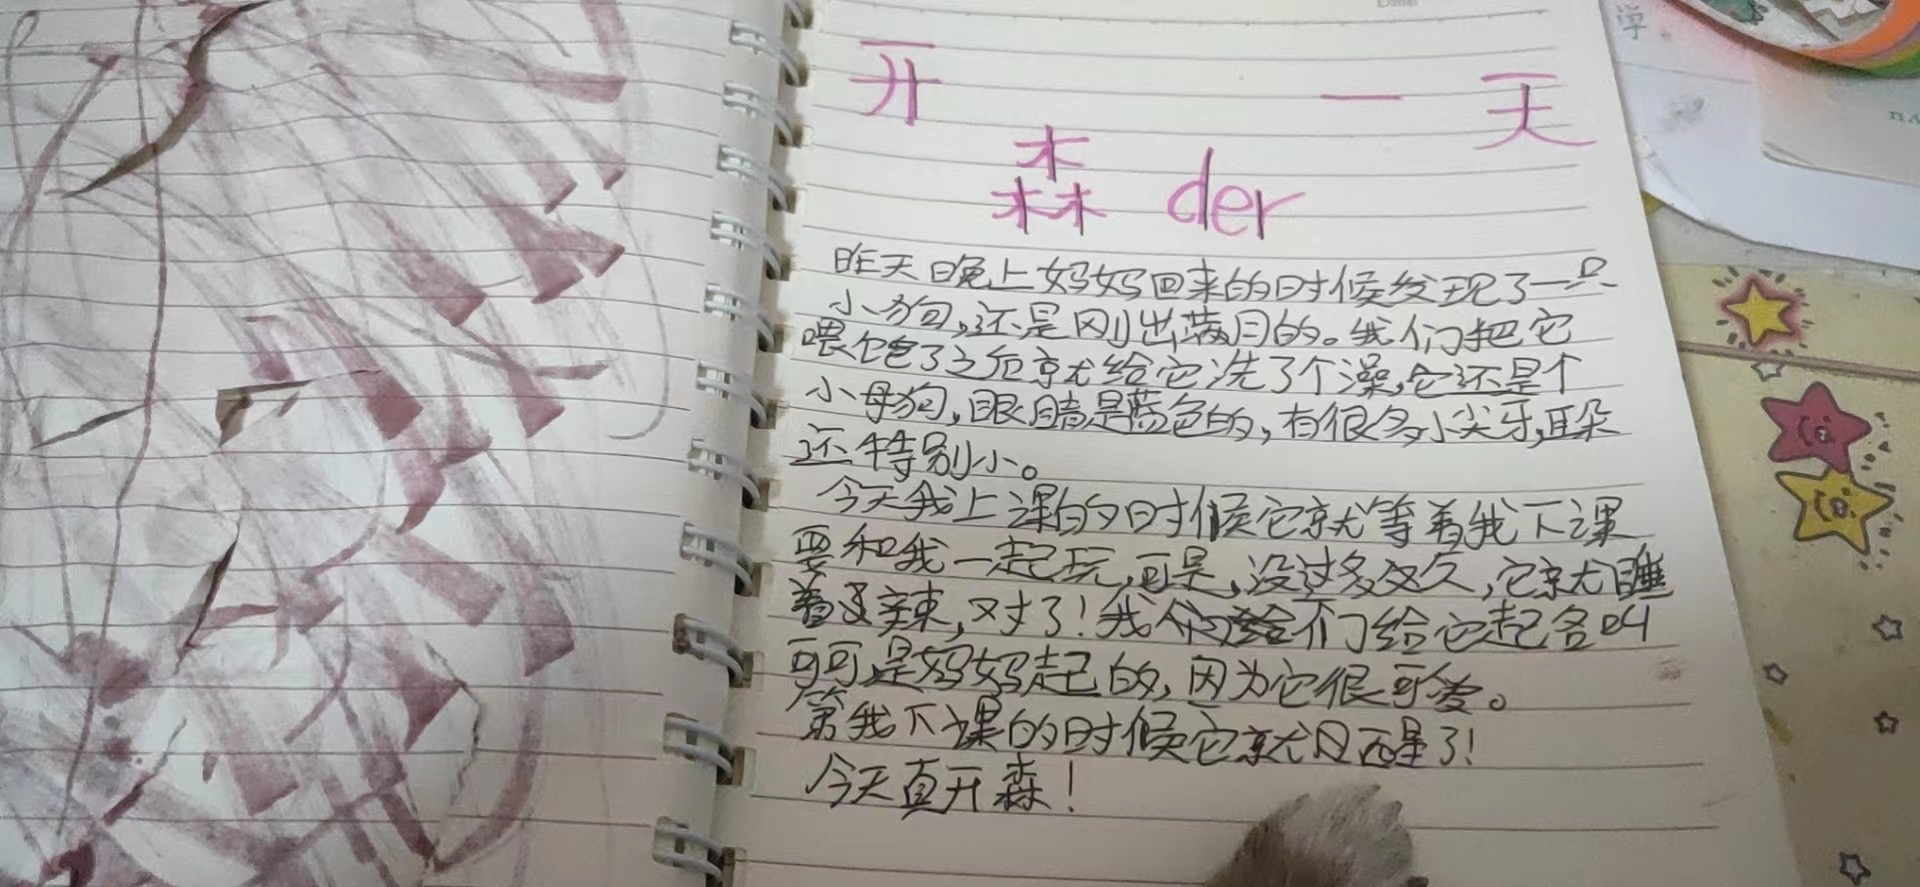 开 一 天
森 der
昨天晚上妈妈回来的时候发现了一只
小狗,还是刚出满月的。我们把它
喂饱了之后就给它洗了个澡,它还是个
小母狗,眼睛是蓝色的,有很多小尖牙,耳朵
还特别小。
今天我上课的时候它就等着我下课
要和我一起玩,可是,没过多久,它就睡
着了辣,对了!我们给它起名叫
可可是妈妈起的,因为它很可爱。
等我下课的时候它就醒了!
今天真开森!
学